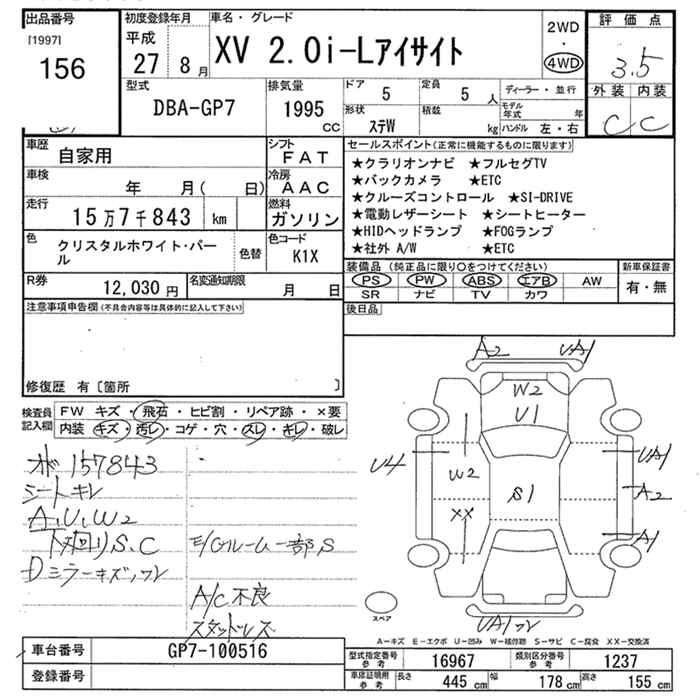 出品番号
[1997]
156
初度登録年月
平成
27 8月
車名・グレード
XV 2.0i-Lアイサイト
2WD
・
4WD
評価点
3.5
外装 内装
C C
型式
DBA-GP7
排気量
1995 CC
ドア 5
定員 5 人
形状 ステW
積載 kg
ディーラー・並行
モデル年式 年
ハンドル 左・右
車歴 自家用
シフト FAT
車検 年 月( 日)
冷房 AAC
走行 15万7千843 km
燃料 ガソリン
色 クリスタルホワイト・パール
色替
色コード K1X
R券 12,030 円
名変通知期限 月 日
セールスポイント(正常に機能するものに限ります)
★クラリオンナビ ★フルセグTV
★バックカメラ ★ETC
★クルーズコントロール ★SI-DRIVE
★電動レザーシート ★シートヒーター
★HIDヘッドランプ ★FOGランプ
★社外 A/W ★ETC
装備品(純正品に限り○をつけてください)
PS PW ABS エアB AW
SR ナビ TV カワ
新車保証書
有・無
後日品
注意事項申告欄(不具合内容等は具体的に記入して下さい)
修復歴 有〔箇所 〕
検査員記入欄
FW キズ・飛石・ヒビ割・リペア跡・×要
内装 キズ・汚レ・コゲ・穴・スレ・キレ・破レ
オド 157843
シートキレ
A,U,W2
下廻りS、C
Dミラーキズ,ワレ
E/Gルーム一部S
A/C不良
スタッドレス
A2 UA1
W2
U1
U4
W2
S1
UA1
A2
XX
A1
UA1ワレ
スペア
A-キズ E-エクボ U-凹み W-補修跡 S-サビ C-腐食 XX-交換済
車台番号 GP7-100516
登録番号
型式指定番号参考 16967
類別区分番号参考 1237
車庫証明用参考
長さ 445 cm
幅 178 cm
高さ 155 cm